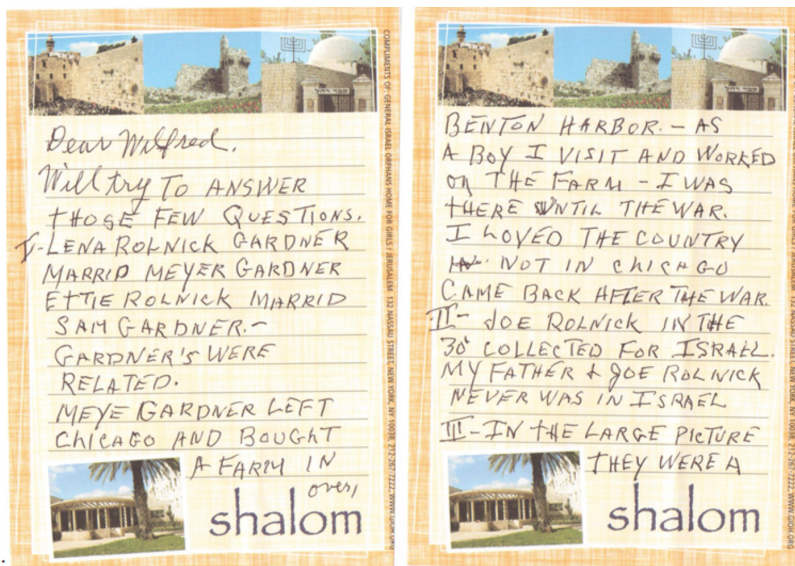 Dear Wilfred.
Will try TO ANSWER
THOSE FEW QUESTIONS.
I-LENA ROLNICK GARDNER
MARRID MEYER GARDNER
ETTIE ROLNICK MARRID
SAM GARDNER.-
GARDNER'S WERE
RELATED.
MEYE GARDNER LEFT
CHICAGO AND BOUGHT
A FARM IN
over,
shalom
COMPLIMENTS OF: GENERAL ISRAEL ORPHANS HOME FOR GIRLS / JERUSALEM 132 NASSAU STREET, NEW YORK, NY 10038 212-267-7222 WWW.GIOH.ORG
BENTON HARBOR. - AS
A BOY I VISIT AND WORKED
ON THE FARM - I WAS
THERE UNTIL THE WAR.
I LOVED THE COUNTRY
NOT IN CHICAGO
CAME BACK AFTER THE WAR
II- JOE ROLNICK IN THE
30' COLLECTED FOR ISRAEL.
MY FATHER & JOE ROLNICK
NEVER WAS IN ISRAEL
III-IN THE LARGE PICTURE
THEY WERE A
shalom
ISRAEL ORPHANS HOME FOR GIRLS / JERUSALEM 132 NASSAU STREET, NEW YORK, NY 10038 212-267-7222 WWW.GIOH.ORG